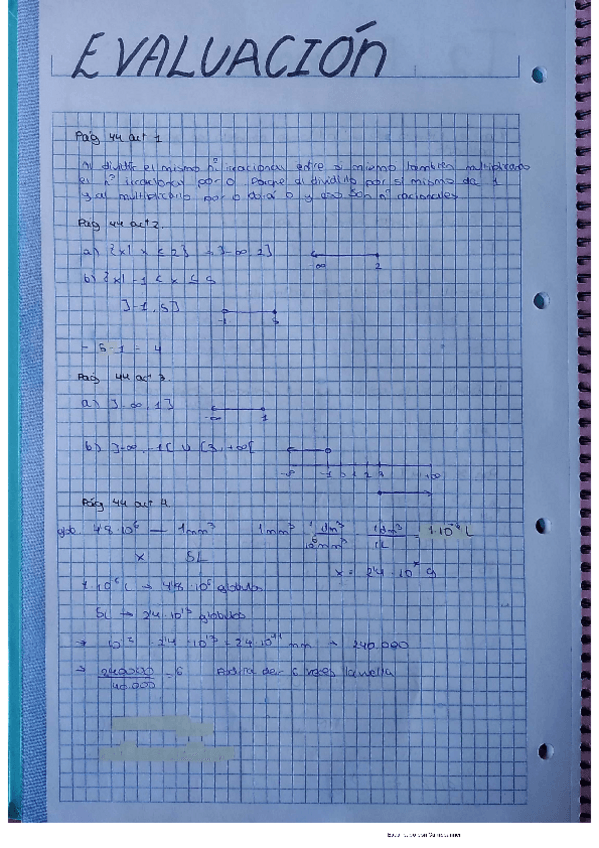 EVALUACIÓN
Pág 44 act 1
Al dividir el mismo nº irracional entre si mismo también multiplicando
el nº irracional por 0 Porque al dividirlo por si mismo da 1
y al multiplicarlo por 0 da a 0 y esos son nº racionales
Pág 44 act 2.
a) {x| x ≤ 2} ]-∞ 2]
-∞ 2
b) {x| -1 < x ≤ 5
]-1, 5]
-1 5
5-1 = 4
Pág 44 act 3.
a) ]-∞, 1]
-∞ 1
b) ]-∞, -1[ ∪ [3, +∞[
-1 0 1 2 3 +∞
Pág 44 act 4.
glob. 48·10⁶ — 1mm³ 1mm³ 1dm³ 1dm³ 1·10⁻⁶ L
10⁶mm³ 1L
x 5L
1·10⁻⁶ L → 48·10⁶ glóbulos
5L → 24·10¹³ glóbulos
→ 240.000
→ 240000 = 6 Podría dar 6 veces la vuelta
40.000